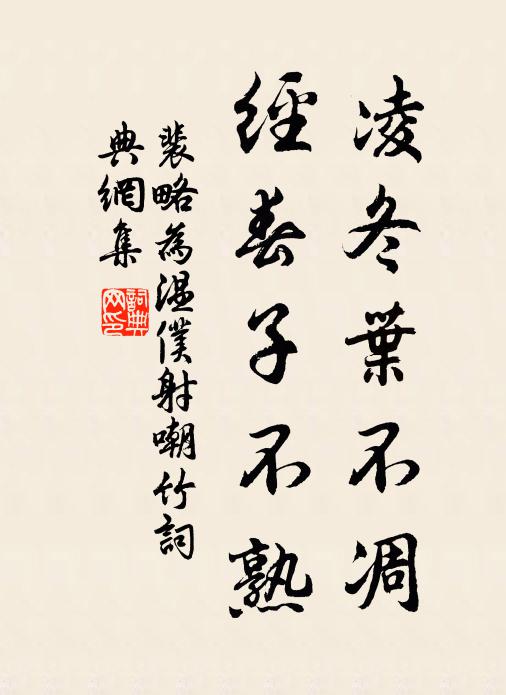 凌冬葉不凋
經春子不熟
裴略為溫僕射嘲竹詞
典網集
詞典
网印